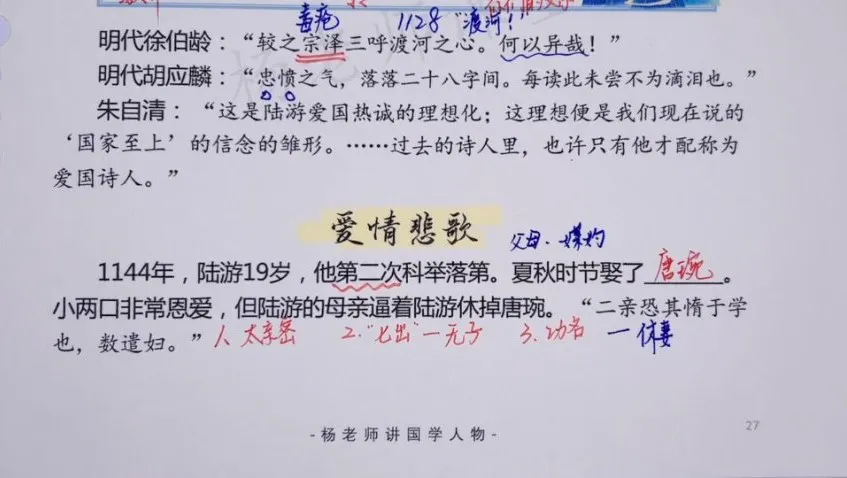 毒疮 1128 “渡河！”
明代徐伯龄：“较之宗泽三呼渡河之心。何以异哉！”
明代胡应麟：“忠愤之气，落落二十八字间。每读此未尝不为滴泪也。”
朱自清：“这是陆游爱国热诚的理想化；这理想便是我们现在说的
‘国家至上’的信念的雏形。……过去的诗人里，也许只有他才配称为
爱国诗人。”
爱情悲歌
父母·媒妁
1144年，陆游19岁，他第二次科举落第。夏秋时节娶了唐琬。
小两口非常恩爱，但陆游的母亲逼着陆游休掉唐琬。“二亲恐其惰于学
也，数遣妇。”1. 太亲密 2.“七出”—无子 3.功名 — 休妻
-杨老师讲国学人物-
27